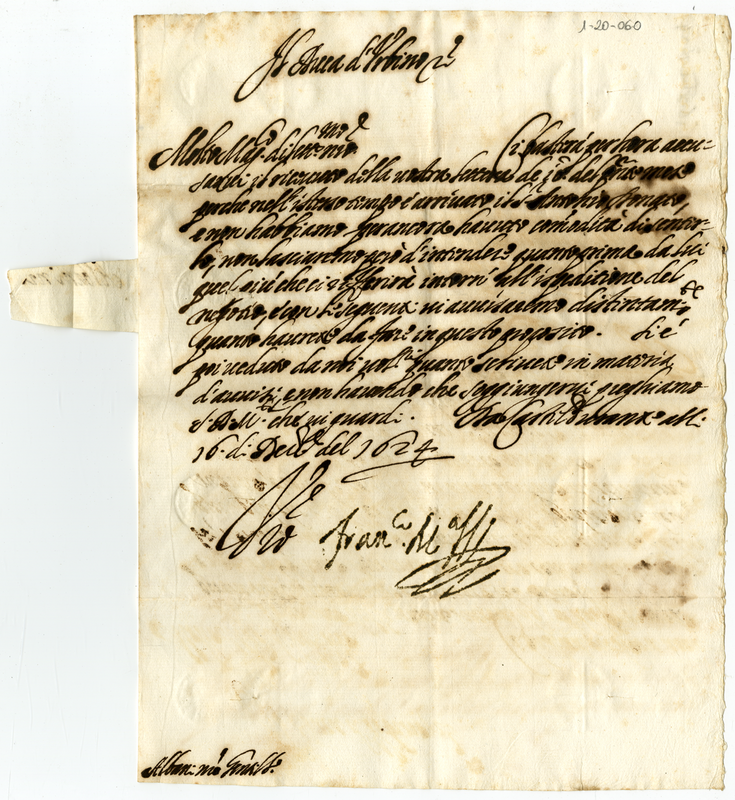 1-20-060
Il Duca d'Urbino &c.
Molto Mag.co dilett.mo nro. Ci basterà per hora accu-
sarvi il ricevuto della vostra lettera de
perche nell'istesso tempo è arrivato il
e non habbiamo per ancora havuto com̃odità di sentir-
lo, non lasciaremo però d'intendere quanto prima da lui
quel più che ci referirà intorn' all'ispeditione del
e con vi avvisaremo distintam.te
quanto haverete da fare in questo proposito. Si è
poi veduto da noi quanto scrivete in materia
d'avvisi, e non havendo che soggiungervi preghiamo
S. D. M.tà che vi guardi. Da Castel Durante alli
16. di Dec.re del 1624
Vro
Fran.co M.a
Alban: